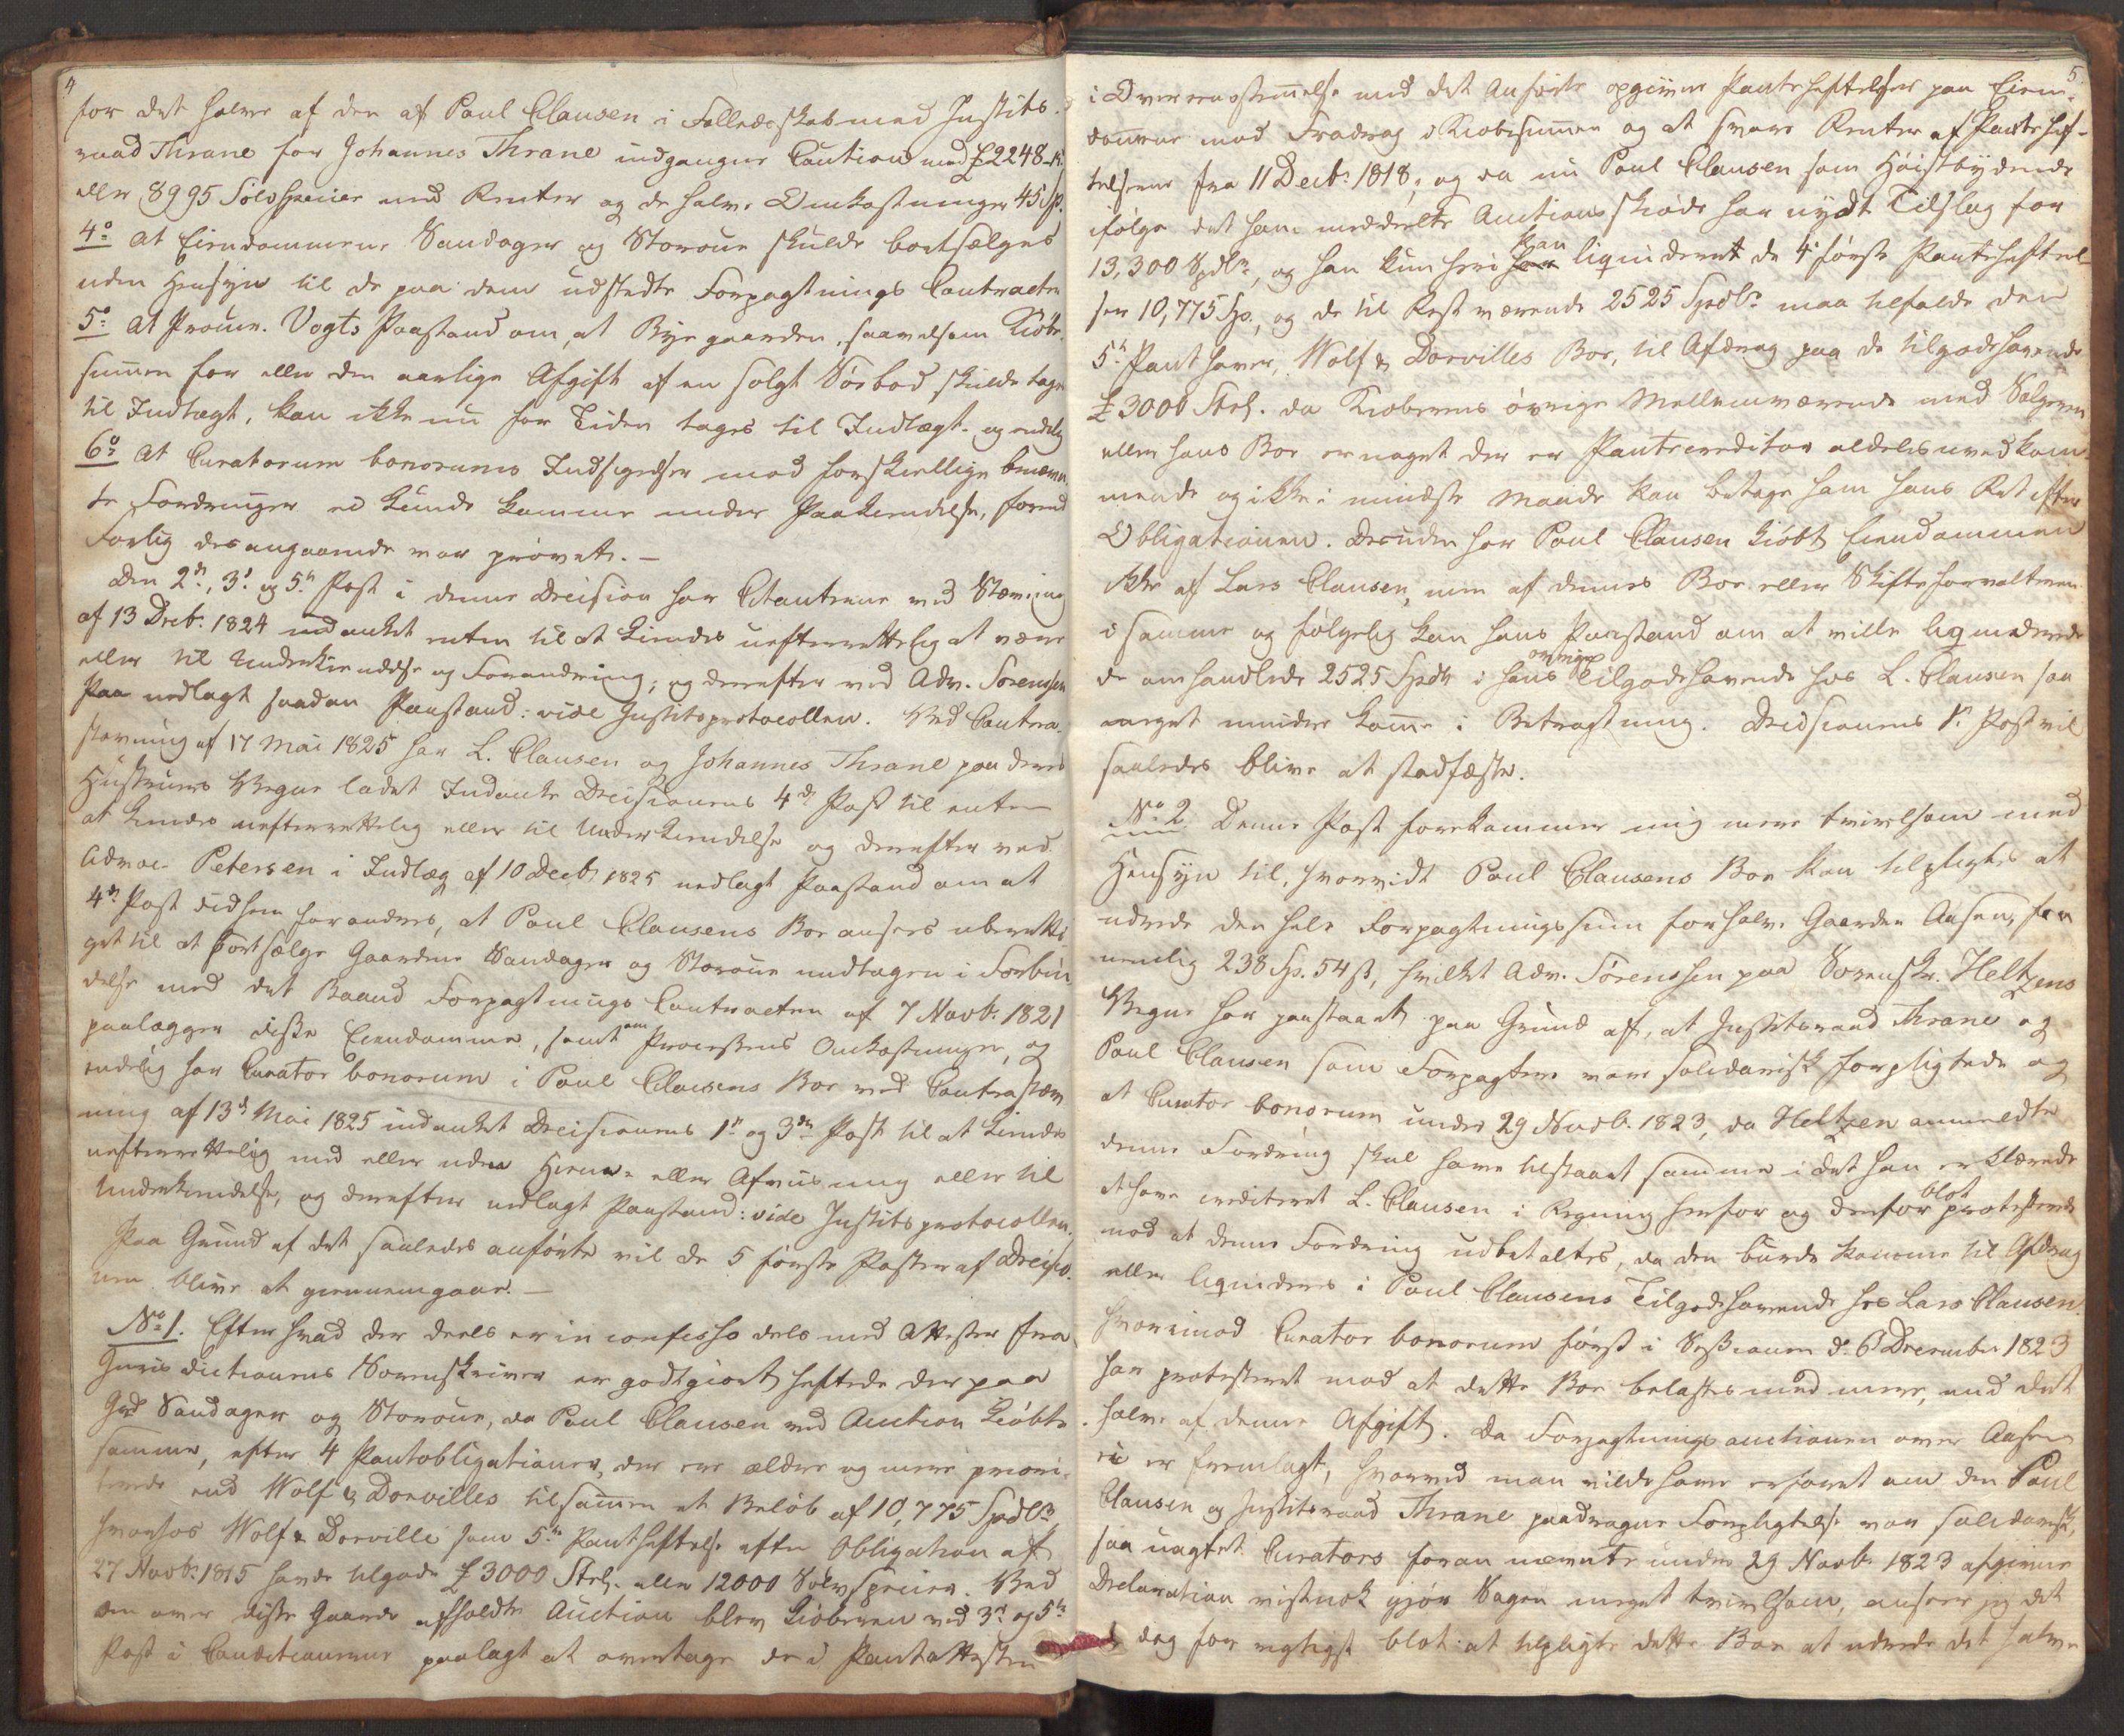 4
for det halve af den af Paul Clausen i Fælledsskab med Justits-
raad Thrane for Johannes Thrane indgangne Caution med £2248
eller 8995 Sølvspecier med Renter og de halve Omkostninger 45 Sp.
4º At Eiendommene Sandager og Storoue skulde bortsælges
uden Hensyn til de paa dem udstedte Forpagtnings Contracter
5º At Procur. Vogts Paastand om, at Byegaarden, saavelsom Kiøbe-
summen for eller den aarlige Afgift af en solgt Søebod skulde tages
til Indtægt, kan ikke nu for Tiden tages til Indtægt og endelig
6º At Curatorum bonorums Indsigelser mod forskiellige benævn-
te Fordringer ei kunde komme under Paakiendelse, forend
Forlig desangaaende var prøvet. —
Den 2den, 3die og 5te Post i denne Decision har Citanterne ved Stævning
af 13 Decbr. 1824 indanket enten til at kiendes uefterrettelig at være
eller til Underkiendelse og Forandring; og derefter ved Adv. Sørenssen
paa nedlagt saadan Paastand: vide Justitsprotocollen. Ved Contra-
stævning af 17 Mai 1825 har L. Clausen og Johannes Thrane paa deres
Hustruers Vegne ladet Indanke Decisionens 4de Post til enten
at kiendes uefterrettelig eller til Underkiendelse og derefter ved
Advoc. Petersen i Indlæg af 10 Decbr 1825 nedlagt Paastand om at
4de Post saaledes forandres, at Paul Clausens Boe ansees uberetti-
get til at bortsælge Gaardene Sandager og Storoue undtagen i Forbin-
delse med det Baand Forpagtnings Contracten af 7 Novbr. 1821
paalægger disse Eiendomme, samt om Processens Omkostninger, og
endelig har Curator bonorum i Paul Clausens Boe ved Contrastæv-
ning af 13de Mai 1825 indanket Decisionens 1ste og 3die Post til at kiendes
uefterrettelig med eller uden Hiem- eller Afviisning eller til
Underkiendelse, og derefter nedlagt Paastand: vide Justitsprotocollen.
Paa Grund af det saaledes anførte vil de 5 første Poster af Decisio-
nen blive at giennemgaae. —
No 1. Efter hvad der deels er in confesso dels med Attester fra
Jurisdictionens Sorenskriver er godtgiort heftede der paa
Grd Sandager og Storoue, da Paul Clausen ved Auction kiøbte
samme, efter 4 Pantobligationer, der ere ældre og mere priori-
terede end Wolf & Dorvilles tilsammen et Beløb af 10,775 Spdlr
hvorhos Wolf & Dorville som 5te Pantheftelse efter Obligation af
27 Novbr. 1815 havde tilgode £ 3000 Strl. eller 12000 Sølvspecier. Ved
den over disse Gaarde afholdte Auction blev Kiøberen ved 3die og 5te
Post i Conditionerne paalagt at overtage de i Pantattesten
5.
i Overeensstemmelse med det Anførte opgivne Pantheftelser paa Eien-
dommene mod Fradrag i Kiøbesummen og at svare Renter af Panthef-
telserne fra 11 Decbr. 1818; og da nu Paul Clausen som Høistbydende
ifølge det ham meddeelte Auctions skiøde har nydt Tilslag for
13,300 Spdlr, og han kun heri kan liqvideret de 4 første Pantheftel-
ser 10,775 Sp., og de til Rest værende 2525 Spdlr. maa tilfalde den
5te Panthaver, Wolf & Dorvilles Boe, til Afdrag paa de tilgodehavende
£ 3000 Strl. da Kiøberens øvrige Mellemværende med Sælgeren
eller hans Boe er noget der er Pantecreditor aldeles uvedkom-
mende og ikke i mindste Maade kan betage ham hans Ret efter
Obligationen. Desuden har Paul Clausen kiøbt Eiendommen
ikke af Lars Clausen, men af dennes Boe eller Skifteforvalteren
i samme og følgelig kan hans Paastand om at ville liqvidere
de omhandlede 2525 Spdlr i hans øvrige Tilgodehavende hos L. Clausen saa
meget mindre komme i Betragtning. Decisionens 1ste Post vil
saaledes blive at stadfæste.
No 2 Denne Post forekommer mig mere tvivlsom med
Hensyn til, hvorvidt Paul Clausens Boe kan tilpligtes at
udrede den hele Forpagtningssum for halve Gaarden Aasen,
nemlig 238 Sp. 54 ß, hvilket Adv. Sørenssen paa Sorenskr. Heltzens
Vegne har paastaaet paa Grund af, at Justitsraad Thrane og
Paul Clausen som Forpagtere vare solidarisk forpligtede og
at Curator bonorum under 29 Novbr. 1823, da Heltzen anmeldte
denne Fordring skal have tilstaaet samme idet han erklærede
at have crediteret L. Clausen i Regning herfor og derfor blot protesterede
mod at denne Fordring udbetaltes, da den burde komme til Afdrag
eller liqvideres i Paul Clausens Tilgodehavende hos Lars Clausen.
hvorimod Curator bonorum først i Sessionen d. 6 December 1823
har protesteret mod at dette Boe belastes med mere, end det
halve af denne Afgift. Da Forpagtningsauctionen over Aasen
ei er fremlagt, hvorved man vilde have erfaret om den Paul
Clausen og Justitsraad Thrane paadragne Forpligtelse var solidarisk,
saa uagtet Curators foran nævnte under 29 Novbr 1823 afgivne
Declaration vistnok gjør Sagen meget tvivlsom, anseer jeg det
dog for rigtigst blot at tilpligte dette Boe at udrede det halve